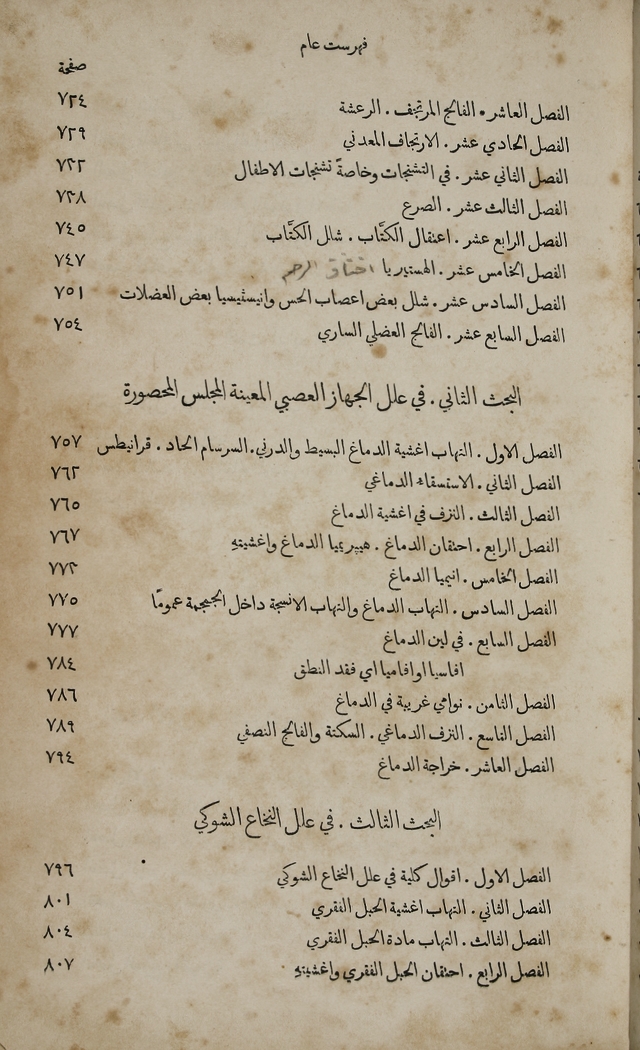 فهرست عام
صفحة
الفصل العاشر . الفالج المرتجف . الرعشة ٧٢٤
الفصل الحادي عشر . الارتجاف المعدني ٧٢٩
الفصل الثاني عشر . في التشنجات وخاصةً تشنجات الاطفال ٧٣٢
الفصل الثالث عشر . الصرع ٧٣٨
الفصل الرابع عشر . اعتقال الكتَّاب . شلل الكتَّاب ٧٤٥
الفصل الخامس عشر . الهستيريا اختناق الرحم ٧٤٧
الفصل السادس عشر . شلل بعض اعصاب الحس وانيستيسيا بعض العضلات ٧٥١
الفصل السابع عشر . الفالج العضلي الساري ٧٥٤
البحث الثاني . في علل الجهاز العصبي المعينة المجلس المحصورة
الفصل الاول . التهاب اغشية الدماغ البسيط والدرني . السرسام الحاد . قرانيطس ٧٥٧
الفصل الثاني . الاستسقاء الدماغي ٧٦٢
الفصل الثالث . النزف في اغشية الدماغ ٧٦٥
الفصل الرابع . احتقان الدماغ . هيبريميا الدماغ واغشيتهِ ٧٦٧
الفصل الخامس . انيميا الدماغ ٧٧٣
الفصل السادس . التهاب الدماغ والتهاب الانسجة داخل الجمجمة عمومًا ٧٧٥
الفصل السابع . في لين الدماغ ٧٧٧
افاسيا او افاميا اي فقد النطق ٧٨٤
الفصل الثامن . نوامي غريبة في الدماغ ٧٨٦
الفصل التاسع . النزف الدماغي . السكتة والفالج النصفي ٧٨٩
الفصل العاشر . خراجة الدماغ ٧٩٤
البحث الثالث . في علل النخاع الشوكي
الفصل الاول . اقوال كلية في علل النخاع الشوكي ٧٩٦
الفصل الثاني . التهاب اغشية الحبل الفقري ٨٠١
الفصل الثالث . التهاب مادة الحبل الفقري ٨٠٤
الفصل الرابع . احتقان الحبل الفقري واغشيتهِ ٨٠٧